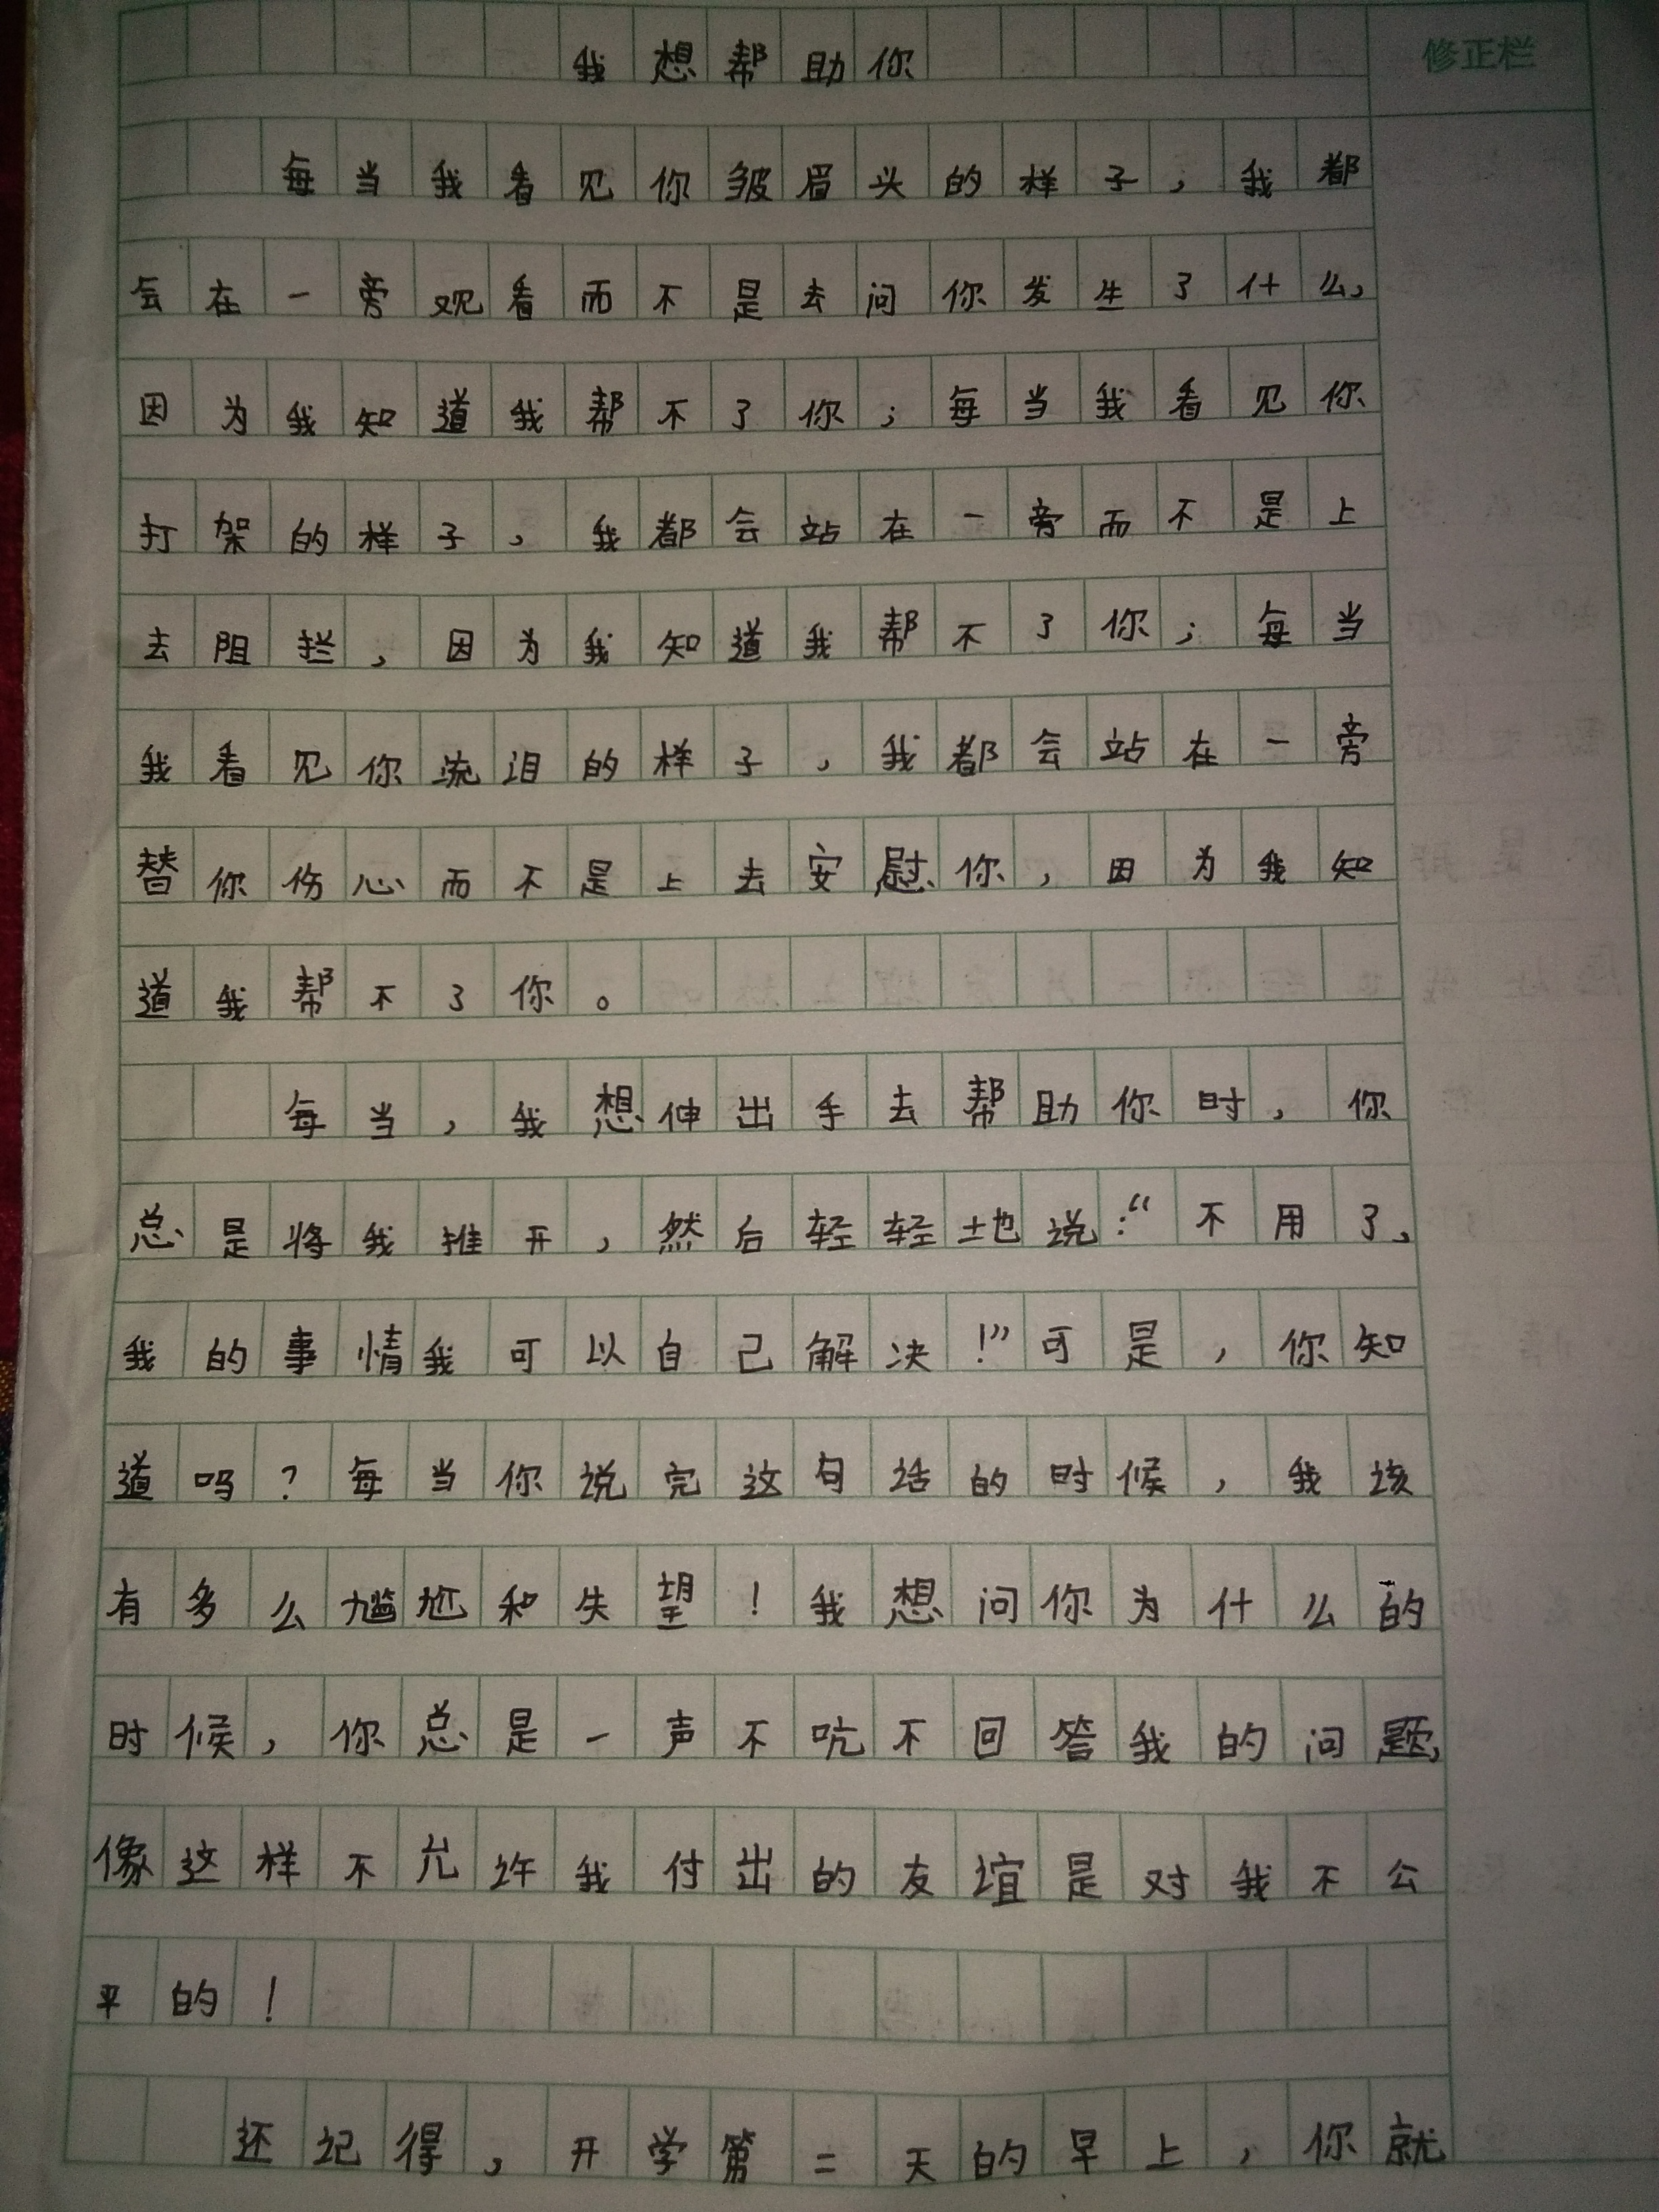 我想帮助你
修正栏
每当我看见你皱眉头的样子，我都
会在一旁观看而不是去问你发生了什么，
因为我知道我帮不了你；每当我看见你
打架的样子，我都会站在一旁而不是上
去阻拦，因为我知道我帮不了你；每当
我看见你流泪的样子，我都会站在一旁
替你伤心而不是上去安慰你，因为我知
道我帮不了你。
每当，我想伸出手去帮助你时，你
总是将我推开，然后轻轻地说：“不用了，
我的事情我可以自己解决！”可是，你知
道吗？每当你说完这句话的时候，我该
有多么尴尬和失望！我想问你为什么的
时候，你总是一声不吭不回答我的问题，
像这样不允许我付出的友谊是对我不公
平的！
还记得，开学第二天的早上，你就